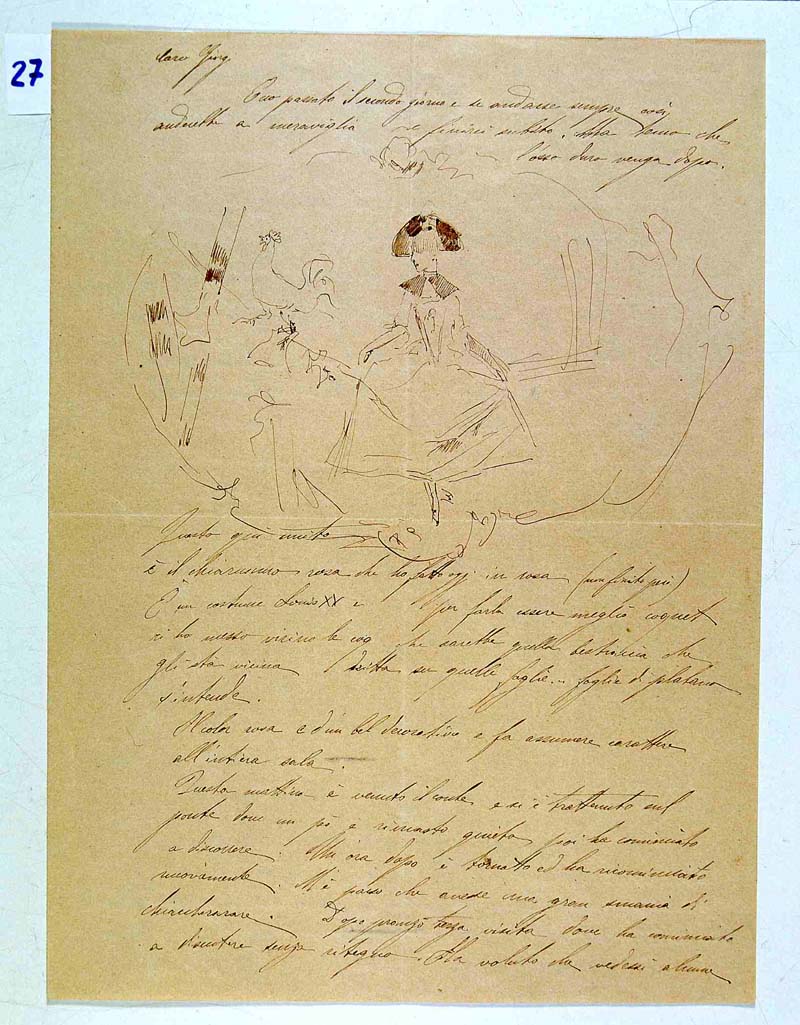 27
Caro Giorg.
Ecco passato il secondo giorno e se andasse sempre così
anderebbe a meraviglia e finirei subito. Ma temo che
l'osso duro venga dopo.
Questo qui unito
è il chiarissimo rosa che ho fatto oggi in rosa (non finito però)
È un costume Louis XV e per farla essere meglio coquet
ci ho messo vicino le coq che sarebbe quella bestiaccia che
gli sta vicina dritta su quelle foglie... foglie di platano
s'intende.
Il color rosa è d'un bel decorativo e fa assumere carattere
all'intiera sala.
Questa mattina è venuto il conte e si è trattenuto sul
ponte dove un pò è rimasto quieto, poi ha cominciato
a discorrere. Un'ora dopo è tornato ed ha ricominciato
nuovamente. M'è parso che avesse una gran smania di
chiacchierare. Dopo pranzo terza visita dove ha cominciato
a discutere senza ritegno. Ha voluto che vedessi alcune